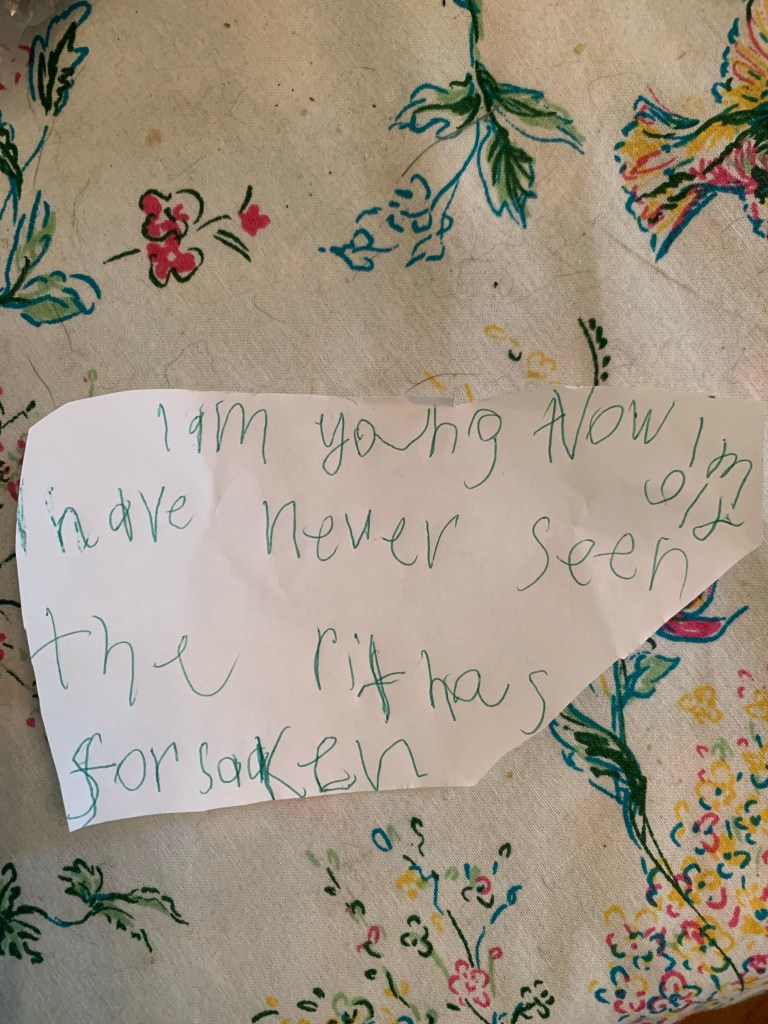 I am young Now I'm
old
have never seen
the rit has
forsaken